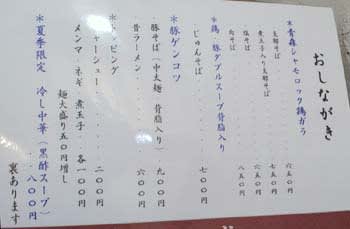 おしながき
＊青森シャモロック鶏ガラ
支那そば・・・・・六五〇円
煮玉子入り支那そば・・・七五〇円
塩そば・・・・・六五〇円
肉そば・・・・・八五〇円
＊鶏、豚ダブルスープ背脂入り
じゅんそば・・・・・七〇〇円
＊豚ゲンコツ
豚そば（中太麺 背脂入り）・九〇〇円
昔ラーメン・・・・・六〇〇円
＊トッピング
チャーシュー・・・・・二〇〇円
メンマ・ネギ・煮玉子・各一〇〇円
麺大盛り五〇円増し
＊夏季限定 冷し中華（黒酢スープ）・・・八〇〇円
裏あります